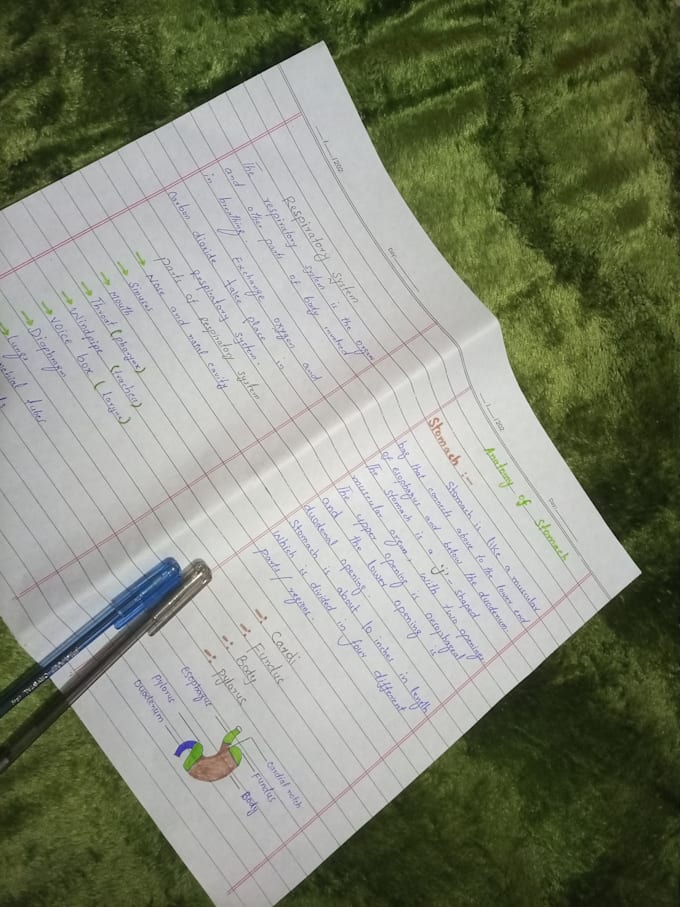 ___/___/202
DAY:
Respiratory System
The respiratory system is the organ
and other parts of body involved
in breathing Exchange oxygen and
Carbon dioxide take place in
Respiratory System.
parts of respiratory System
Nose and nasal cavity
Sinuses
Mouth
Throt (pharynx)
Windpipe (trachea)
Voice box (larynx)
Diaphragm
Lungs
tubes
___/___/202
DAY:
Anatomy of Stomach
Stomach :-
Stomach is like a muscular
bag that connects above to the lower end
of esophagus and below the duodenum.
The stomach is a "J" - shaped
muscular organ, with two openings
The upper opening is oesophageal
and the lower opening is
duodenal opening
Stomach is about 10 inches in length
Which is divided in four different
parts/regions.
Cardi
Fundus
Body
Pylorus
Esophagus
Pylorus
Duodenum
Cardial notch
Fundus
Body